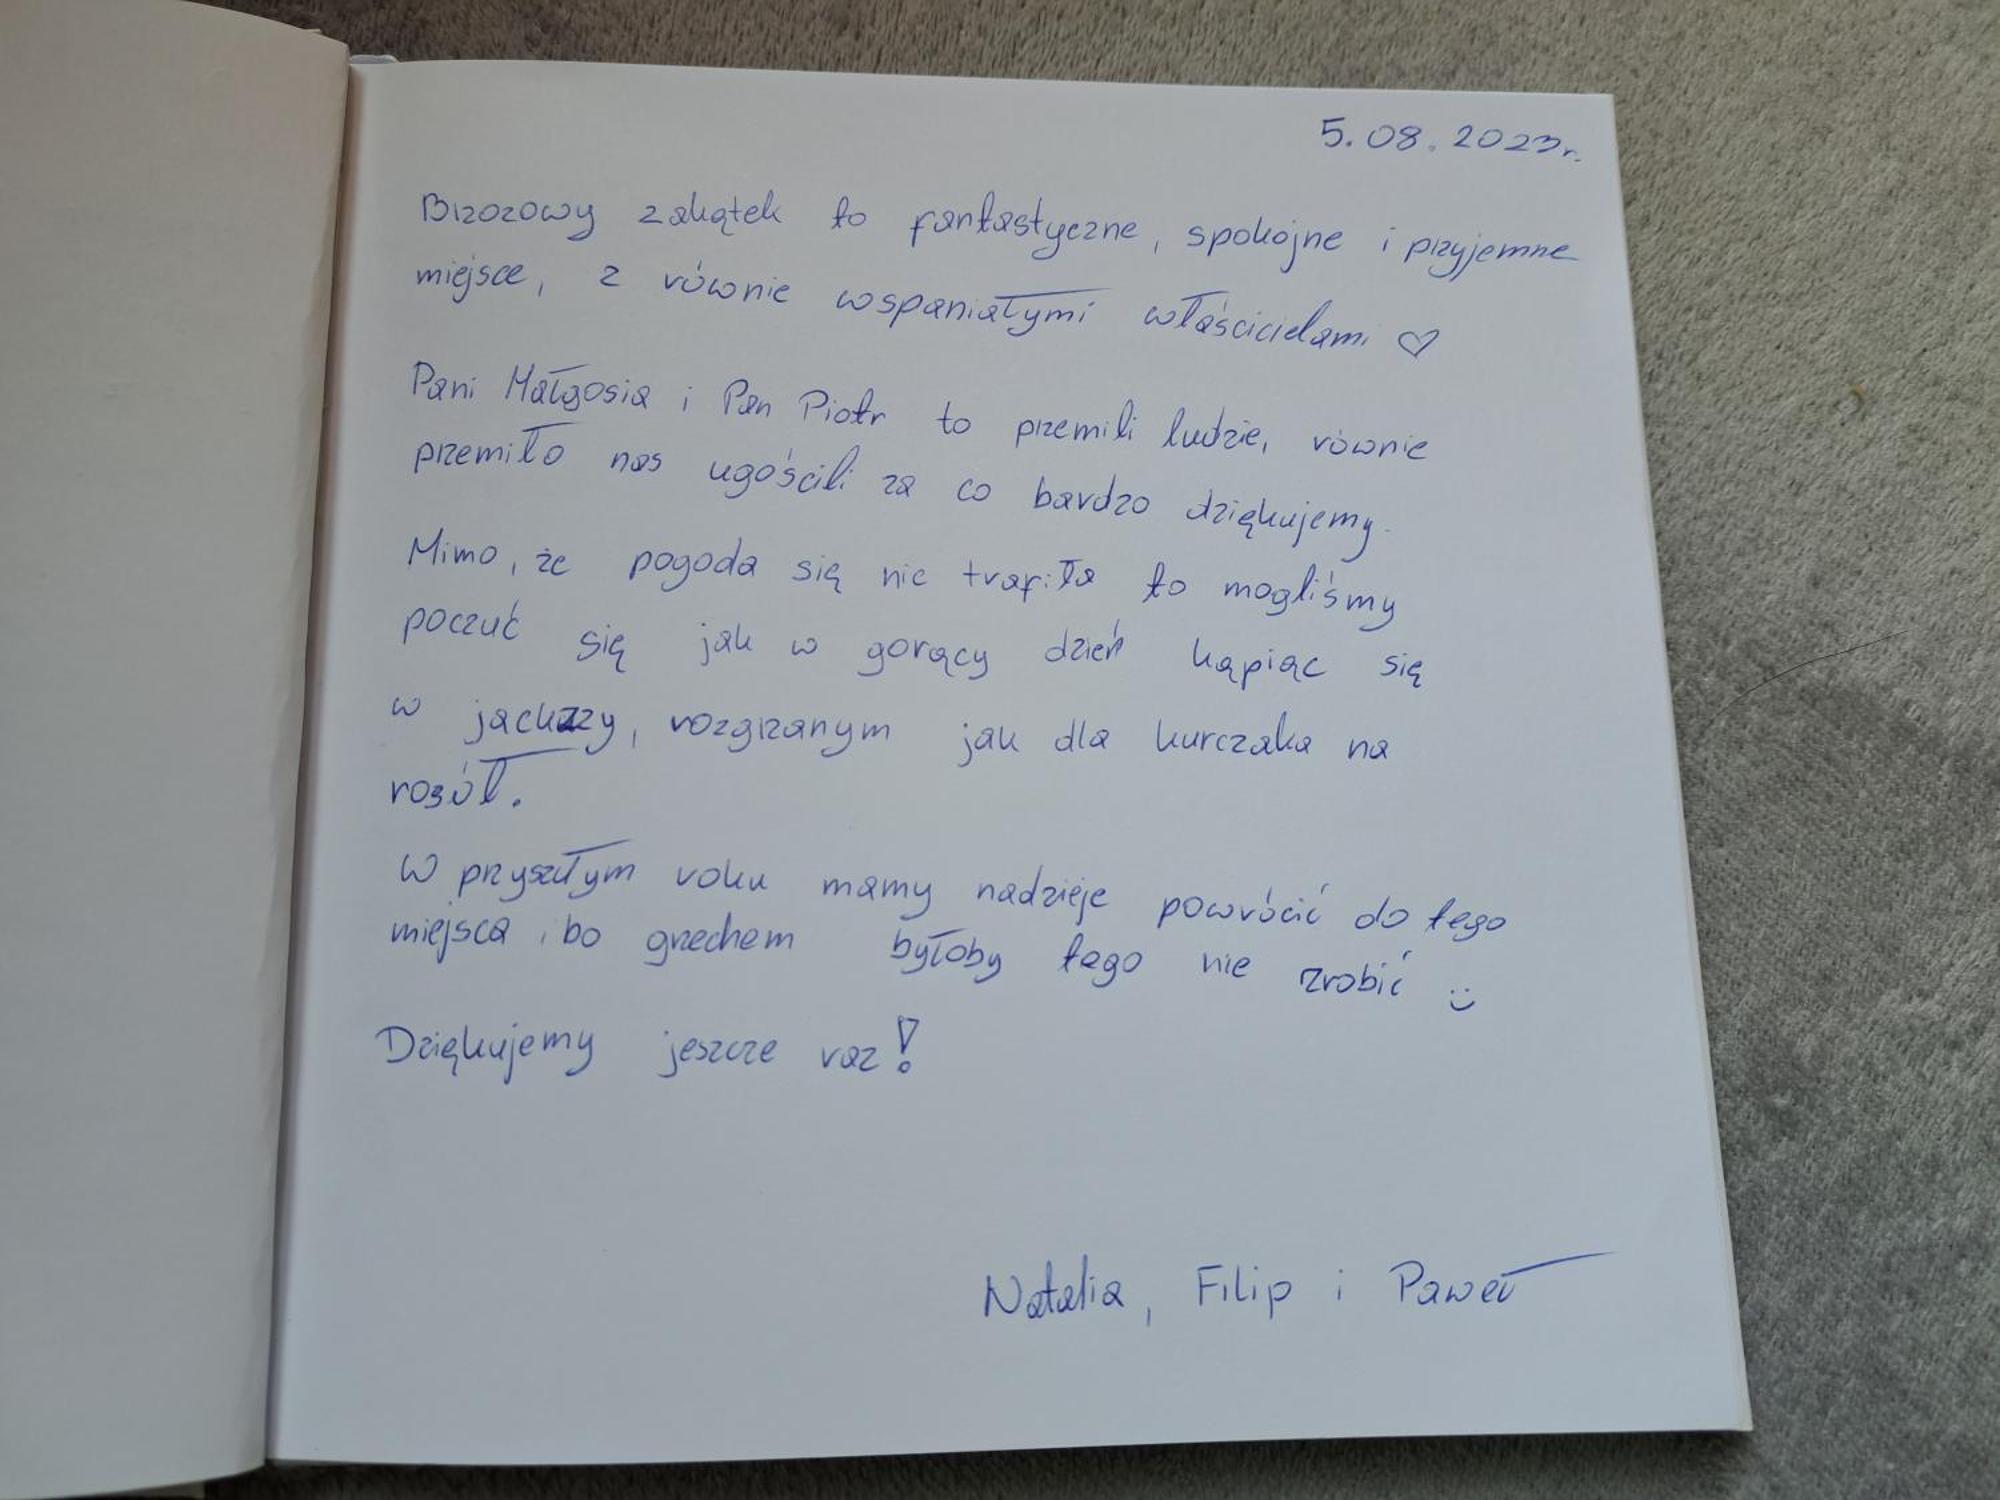 5.08.2023r.
Brzozowy zakątek to fantastyczne, spokojne i przyjemne
miejsce, z równie wspaniałymi właścicielami ♡
Pani Małgosia i Pan Piotr to przemili ludzie, równie
przemiło nas ugościli za co bardzo dziękujemy.
Mimo, że pogoda się nie trafiła to mogliśmy
poczuć się jak w gorący dzień kąpiąc się
w jacuzzy, rozgrzanym jak dla kurczaka na
rosół.
W przyszłym roku mamy nadzieję powrócić do tego
miejsca, bo grzechem byłoby tego nie zrobić :)
Dziękujemy jeszcze raz!
Natalia, Filip i Paweł